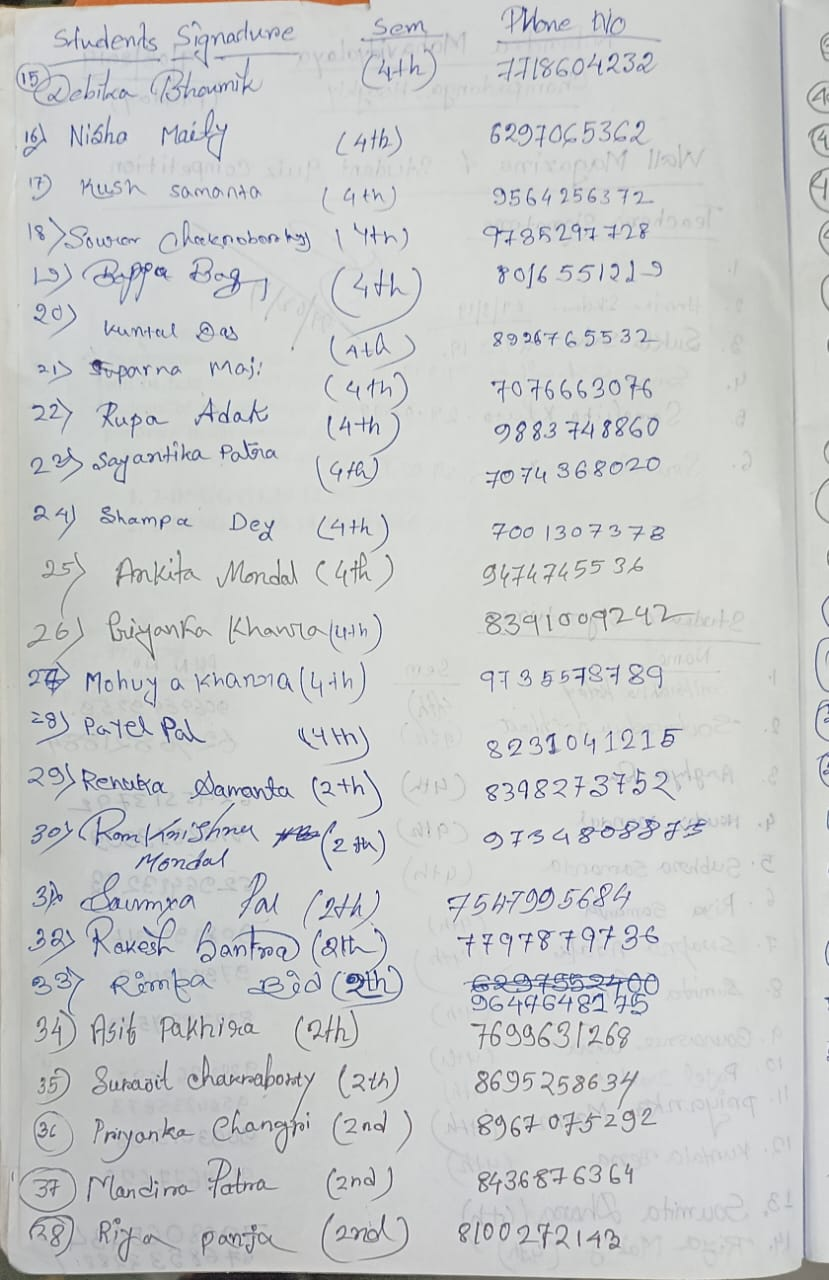 Students Signature Sem Phone No
15) Debika Bhoumik (4th) 7718604232
16) Nisha Maity (4th) 6297065362
17) Kush Samanta (4th) 9564256372
18) Sourav Chakraborty (4th) 9735297728
19) Bappa Bag (4th) 8016551219
20) Kuntal Das (4th) 8926765532
21) Suparna Maji (4th) 7076663076
22) Rupa Adak (4th) 9883748860
23) Sayantika Patra (4th) 7074368020
24) Shampa Dey (4th) 7001307378
25) Ankita Mondal (4th) 9474745536
26) Priyanka Khanra (4th) 8391009242
27) Mohuya Khanra (4th) 9735578789
28) Payel Pal (4th) 8231041215
29) Renuka Samanta (2th) 8398273752
30) Ramkrishna (2th) 9734808875
Mondal
31) Saumya Pal (2th) 7547995684
32) Rakesh Santra (2th) 7797879736
33) Rimpa Bid (2th) 6297552400
9649648175
34) Asif Pakhira (2th) 7699631268
35) Surajit Chakraborty (2th) 8695258634
36 Priyanka Changri (2nd) 8967075292
37 Mandira Patra (2nd) 8436876364
38) Riya Panja (2nd) 8100272143